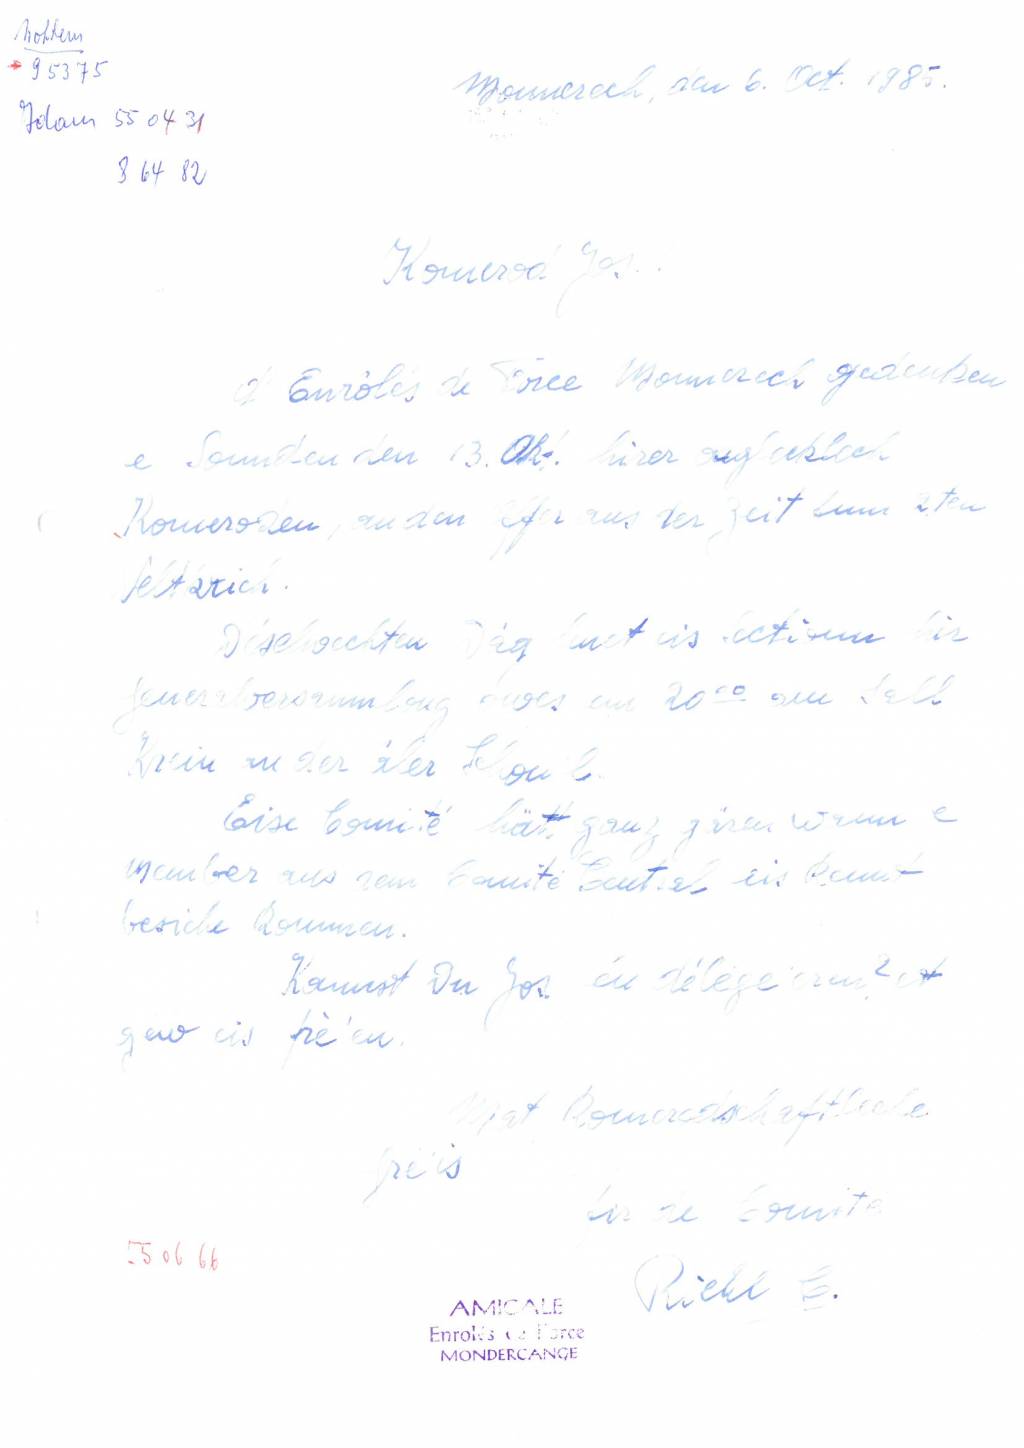 95375
Adam 55 04 31
8 64 82
Monnerech, den 6. Oct. 1985.
Komerod Jos.
d' Enrôlés de Force Monnerech gedenken
e Sonnden den 13. Okt. hirer
Komeroden, an den Affer aus der Zeit vum 2ten
Weltkrich.
Dag huet eis Sectioun hir
Generalversammlung owes um 20 00 am Sall
Krein an der aler Schoul.
Eise Comité hätt ganz gären wann e
Member aus dem Comité Central eis kennt
besiche kommen.
Kannst Du Jos. en délégéieren? et
géiw eis fréen.
Mat Komeredschaftleche
Gréis
fir de Comité
Riehl E.
55 06 66
AMICALE
Enrolés de Force
MONDERCANGE